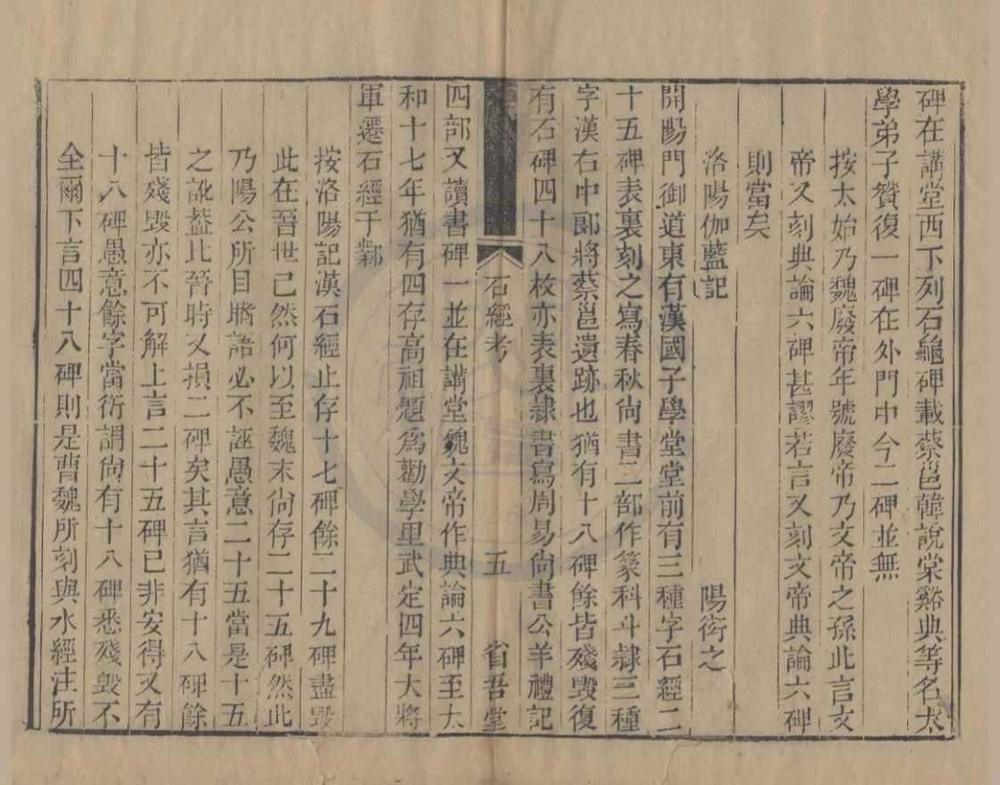 碑在講堂西下列石龜碑載蔡邕韓說棠谿典等名太
學弟子贊復一碑在外門中今二碑並無
按太始乃魏廢帝年號廢帝乃文帝之孫此言文
帝又刻典論六碑甚謬若言又刻文帝典論六碑
則當矣
洛陽伽藍記 陽衒之
開陽門御道東有漢國子學堂堂前有三種字石經二
十五碑表裏刻之寫春秋尙書二部作篆科斗隷三種
字漢右中郞將蔡邕遺跡也猶有十八碑餘皆殘毀復
有石碑四十八枚亦表裏隷書寫周易尙書公羊禮記
石經考 五 省吾堂
四部又讀書碑一並在講堂魏文帝作典論六碑至太
和十七年猶有四存高祖題爲勸學里武定四年大將
軍遷石經于鄴
按洛陽記漢石經止存十七碑餘二十九碑盡毀
此在晉世已然何以至魏末尙存二十五碑然此
乃陽公所目睹語必不誣愚意二十五當是十五
之訛葢比晉時又損二碑矣其言猶有十八碑餘
皆殘毀亦不可解上言二十五碑已非安得又有
十八碑愚意餘字當衍謂尙有十八碑悉殘毀不
全爾下言四十八碑則是曹魏所刻與水經注所